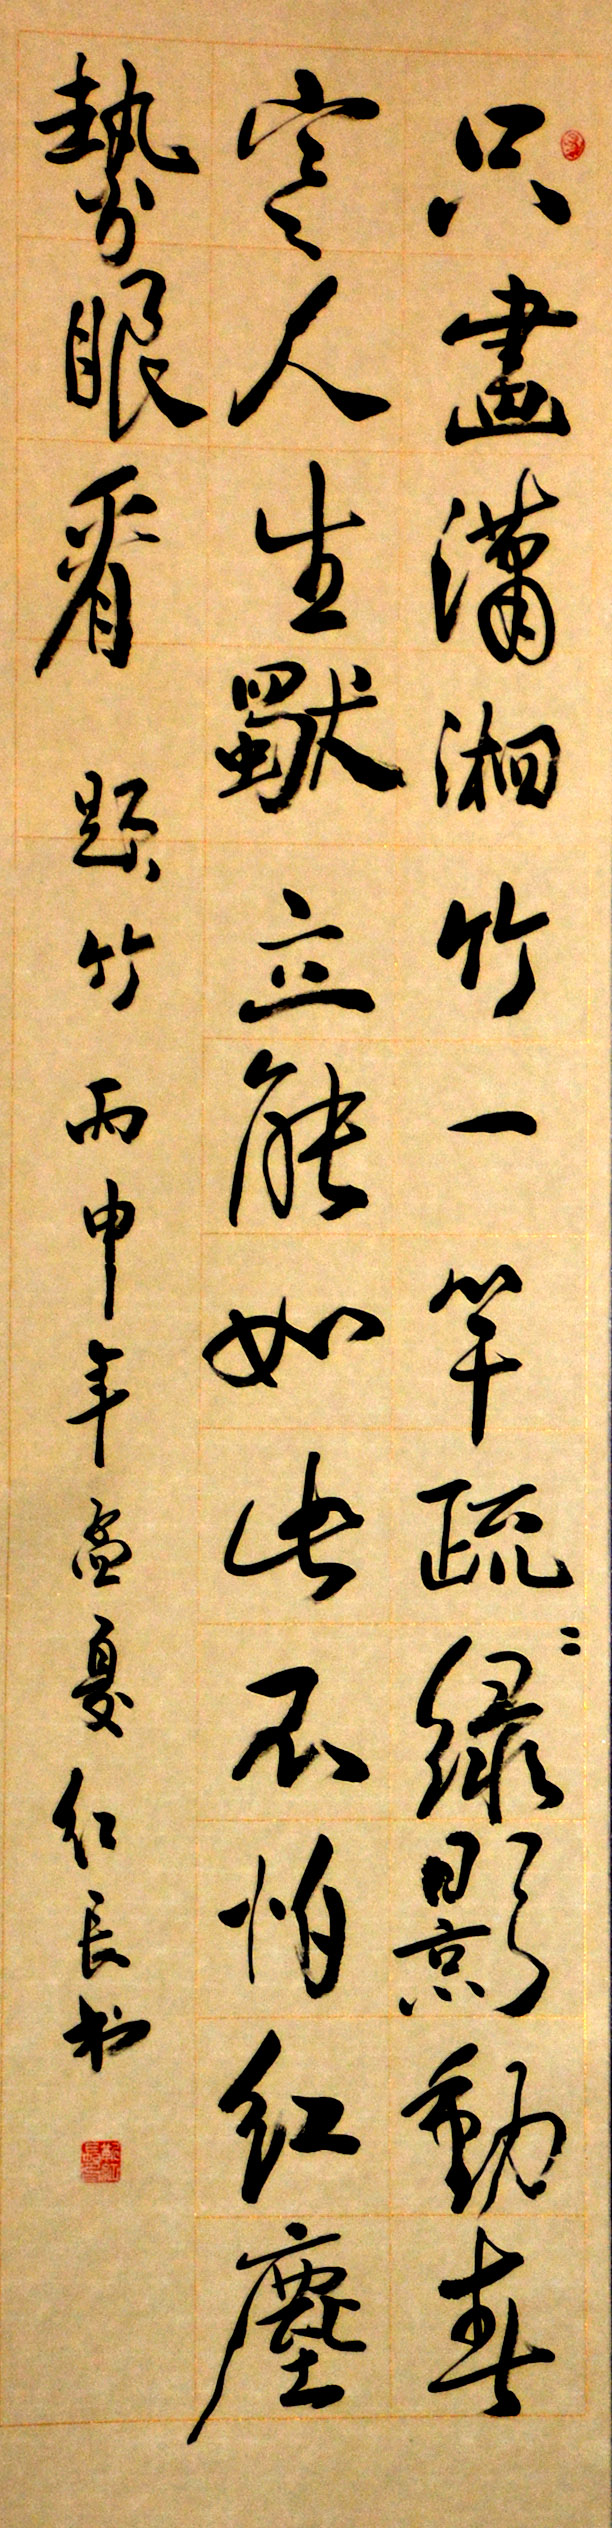 只畫瀟湘竹一竿疏〻綠影動春
寒人生獨立能如此不怕紅塵
勢眼看 題竹 丙申年孟夏紅長书